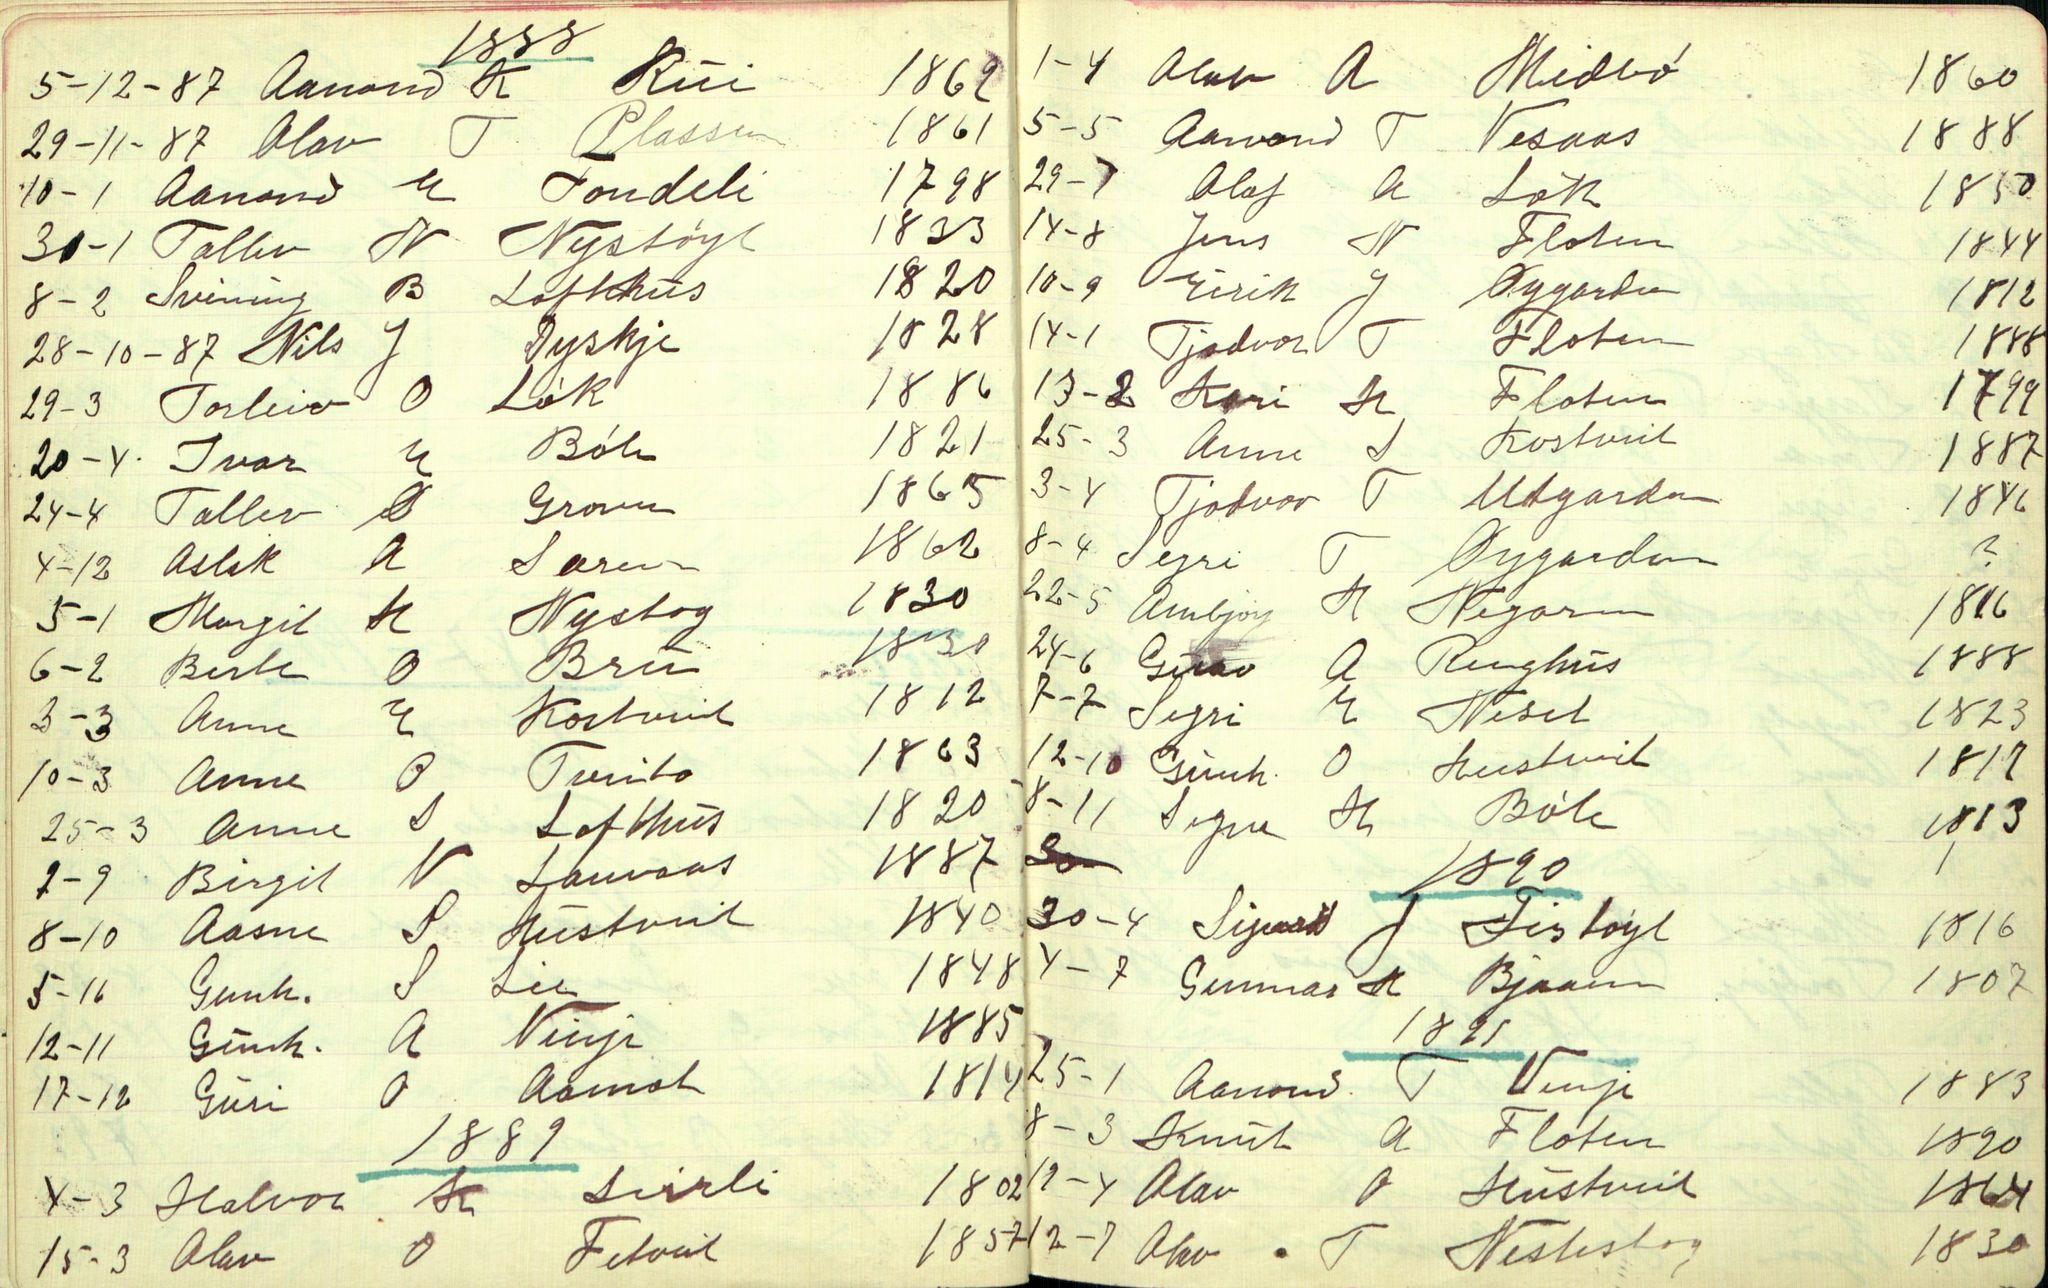 1888
5-12-87 Aanond K Rui 1869
29-11-87 Olav T Plassen 1861
10-1 Aanond E Tondeli 1798
30-1 Tallev N Nystøyl 1833
8-2 Svining B Lofthus 1820
28-10-87 Nils J Dyskje 1828
29-3 Torleiv O Løk 1886
20-4 Ivar E Bøle 1821
24-4 Tallev Groven 1865
4-12 Aslak A 1862
5-1 Margit H Nystog 1830
6-2 Berte O Bru 1830
3-3 Anne E Kostveit 1812
10-3 Anne O Tveito 1863
25-3 Anne S Lofthus 1820
2-9 Birgit N Lauvaas 1887
8-10 Aasne S Hustveit 1840
5-11 Gunh. S Lie 1848
12-11 Gunh. A Vinje 1885
17-12 Guri O Aamot 1814
1889
4-3 Halvor K 1802
15-3 Olav O Fetveit 1857
1-4 Olav A Midbø 1860
5-5 Aanond T Vesaas 1888
29-7 Olaf A Løk 1850
14-8 Jens N Floten 1844
10-9 Eirik J Øygarden 1812
14-1 Tjodvor T Floten 1888
13-2 Kari H Floten 1799
25-3 Anne S Kostveit 1887
3-4 Tjodvor T Utgarden 1846
8-4 Segri T Øygarden ?
22-5 Annbjøg H Negaren 1816
24-6 A Ringhus 1888
7-7 Segri E Neset 1823
12-10 Gunh. O Hustveit 1817
8-11 Signe H Bøle 1813
1890
30-4 Sigurd J 1816
4-7 Gunnar K Bjaaen 1807
1891
25-1 Aanond T Vinje 1883
8-3 Knut A Floten 1890
12-4 Olav O Hustveit 1864
12-7 Olav T Nestestog 1830